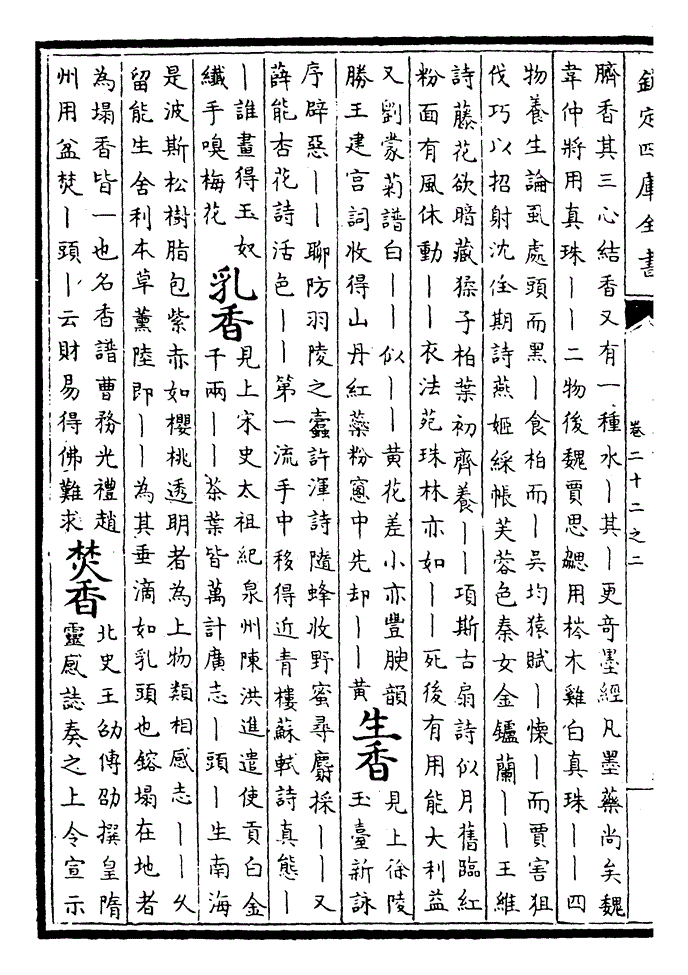 欽定四庫全書
卷二十二之二
臍香其三心結香又有一種水丨其丨更奇墨經凡墨藥尚矣魏
韋仲將用真珠丨丨二物後魏賈思勰用梣木雞白真珠丨丨四
物養生論虱處頭而黑丨食柏而丨吳均猿賦丨懷丨而賈害狙
伐巧以招射沈佺期詩燕姬綵帳芙蓉色秦女金鑪蘭丨丨王維
詩藤花欲暗藏猱子柏葉初齊養丨丨項斯古扇詩似月舊臨紅
粉面有風休動丨丨衣法苑珠林亦如丨丨丨死後有用能大利益
又劉蒙菊譜白丨丨似丨丨黃花差小亦豐腴韻
勝王建宮詞收得山丹紅蘂粉窻中先却丨丨黃
生香
見上徐陵
玉臺新詠
序辟惡丨丨聊防羽陵之蠹許渾詩隨蜂收野蜜尋麝採丨丨又
薛能杏花詩活色丨丨第一流手中移得近青樓蘇軾詩真態丨
丨誰畫得玉奴
纖手嗅梅花
乳香
見上宋史太祖紀泉州陳洪進遣使貢白金
千兩丨丨茶葉皆萬計廣志丨頭丨生南海
是波斯松樹脂包紫赤如櫻桃透明者為上物類相感志丨丨久
留能生舍利本草薰陸即丨丨為其垂滴如乳頭也鎔塌在地者
為塌香皆一也名香譜曹務光禮趙
州用盆焚丨頭丨云財易得佛難求
焚香
北史王劭傳劭撰皇隋
靈感誌奏之上令宣示